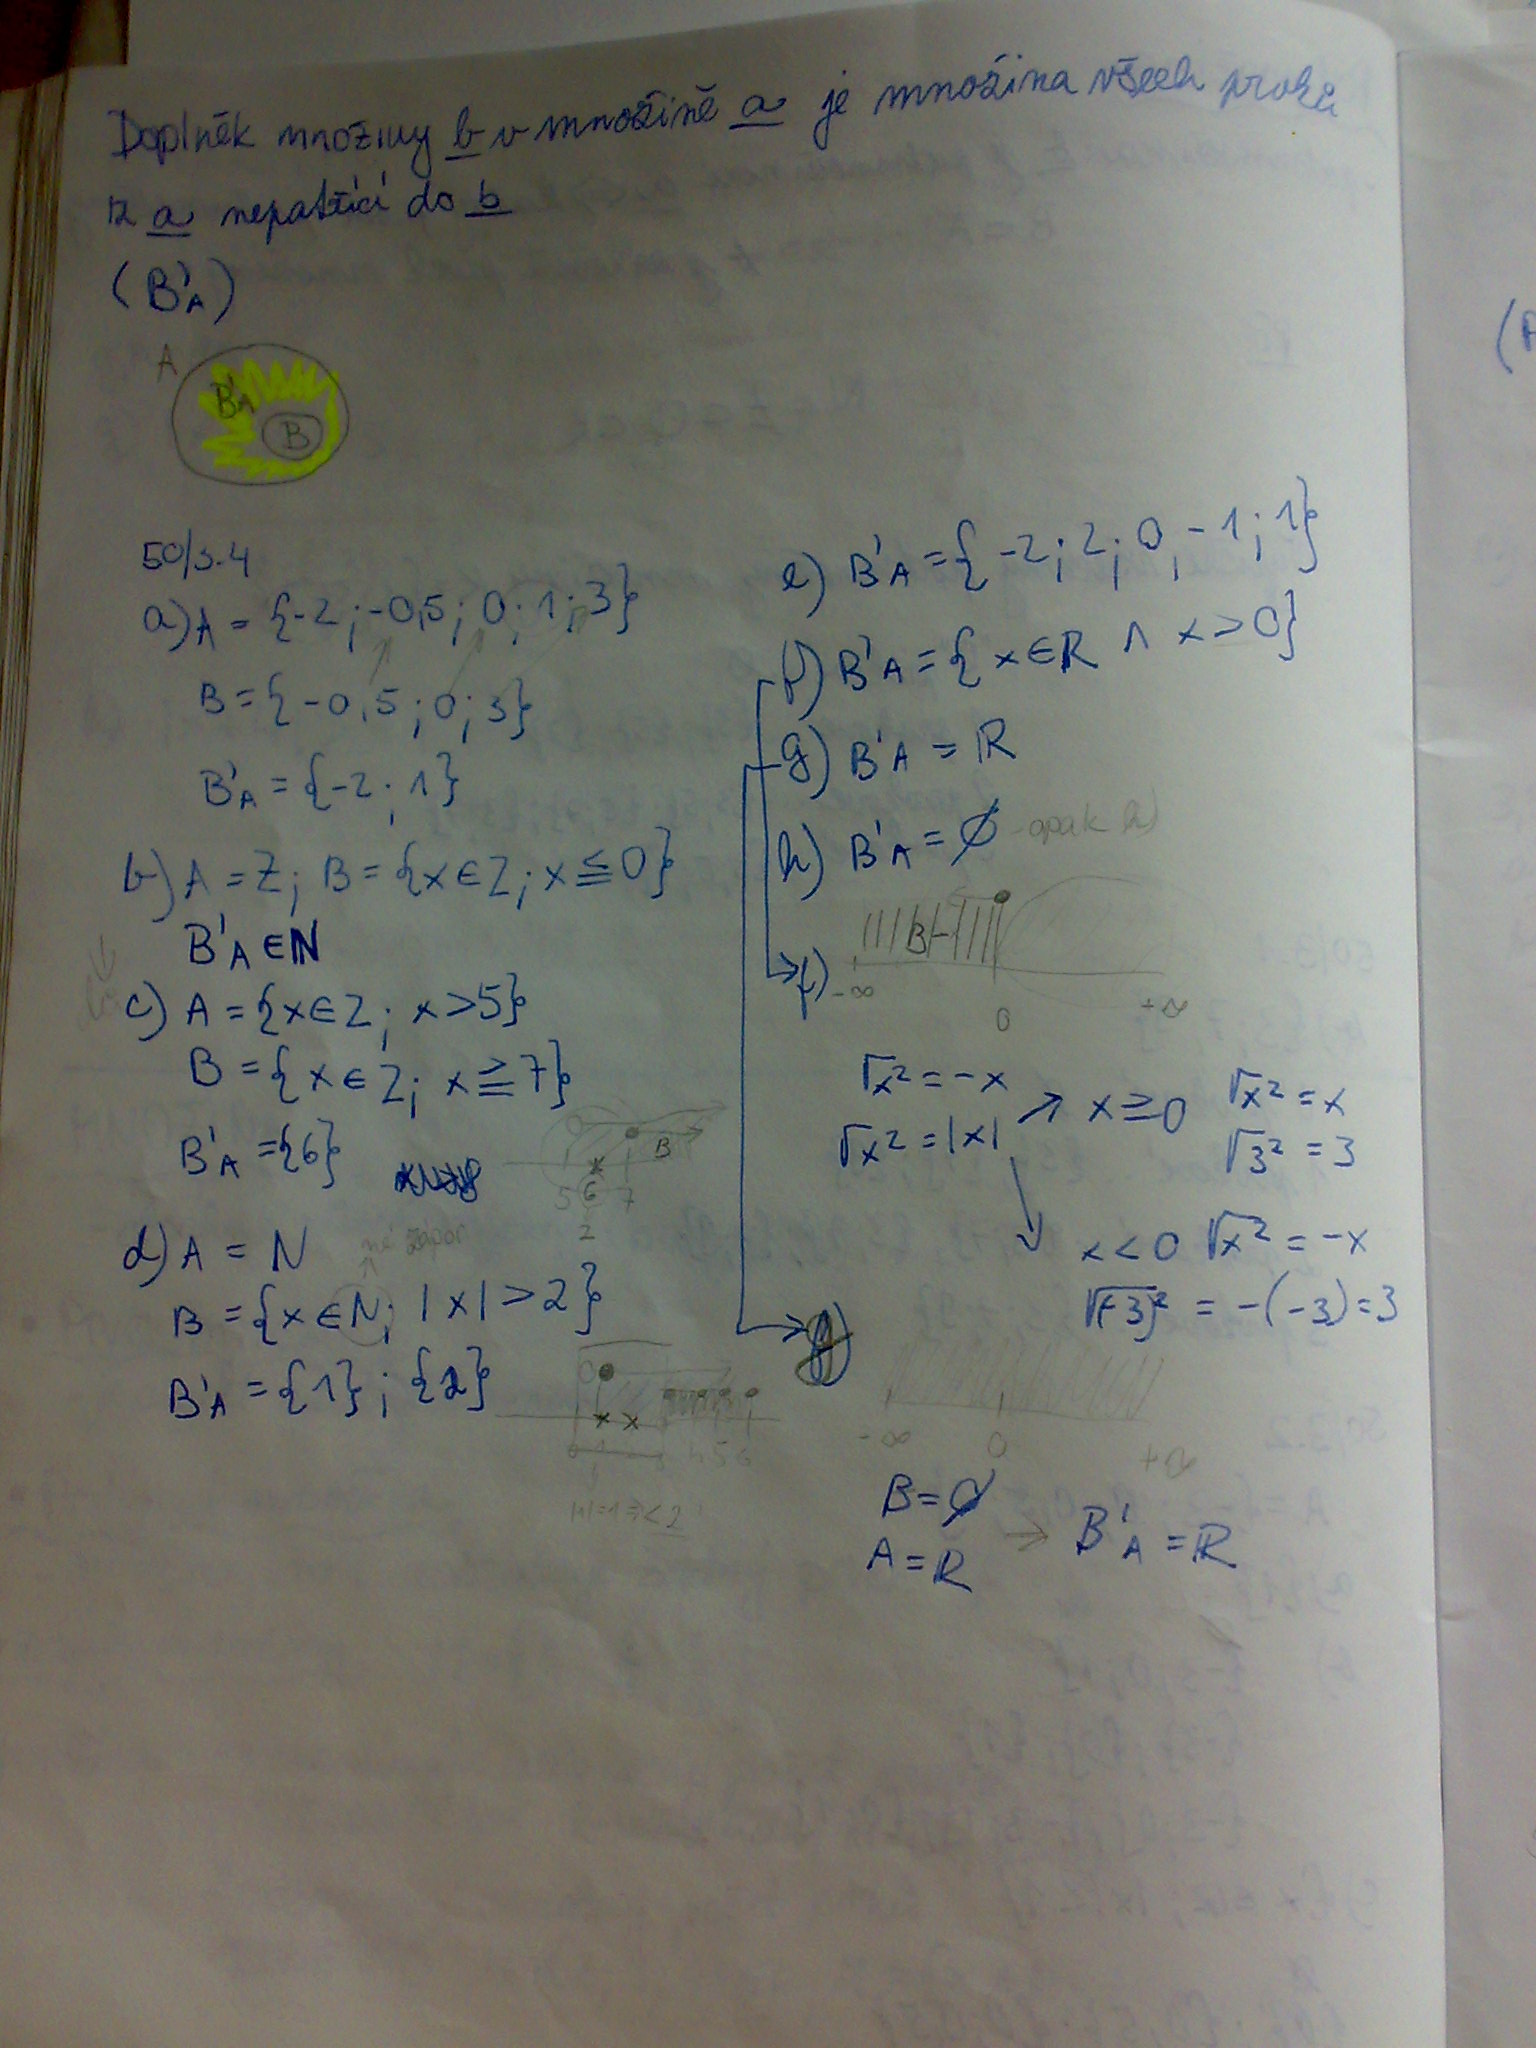 Doplněk množiny b v množině a je množina všech prvků
z a nepatřící do b
(B'A)
A
B'A
B
50/3.4
a) A = {-2 ; -0,5 ; 0 ; 1 ; 3}
B = {-0,5 ; 0 ; 3}
B'A = {-2 ; 1}
b) A = Z ; B = {x ∈ Z ; x ≦ 0}
B'A ∈ N
c) A = {x ∈ Z ; x > 5}
B = {x ∈ Z ; x ≧ 7}
B'A = {6}
B
5 6 7
Z
d) A = N
B = {x ∈ N ; |x| > 2}
B'A = {1} ; {2}
4 5 6
e) B'A = { -2 ; 2 ; 0 , -1 ; 1}
f) B'A = { x ∈ R ∧ x > 0}
g) B'A = R
h) B'A = ∅ - opak
f) -∞ B 0 +∞
√x² = -x
√x² = |x| ↗ x ≥ 0 √x² = x
√3² = 3
x < 0 √x² = -x
√(-3)² = -(-3) = 3
g)
-∞ 0 +∞
B = ∅
A = R → B'A = R